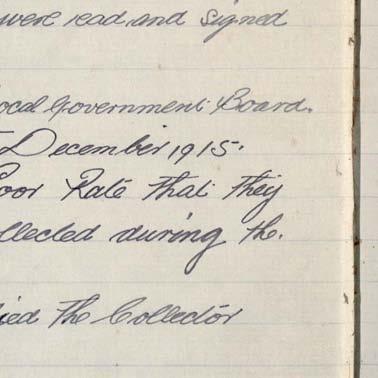 were read and signed
ocal Government Board.
December 1915.
oor Rate that they
llected during the.
ied the Collector